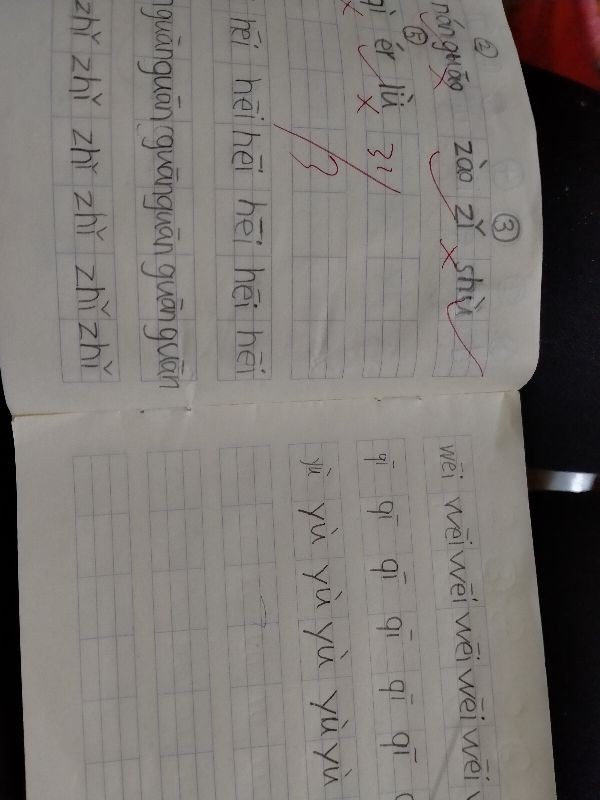 ② ③
zào zǐ shù
⑤
ér lù
31/3
hēi hēi hēi hēi hēi hēi hēi
guānguān guānguānguānguān
zhǐ zhǐ zhǐ zhǐ zhǐ zhǐ
wēi wēi wēi wēi wēi wēi
qī qī qī qī qī qī
yù yù yù yù yù yù